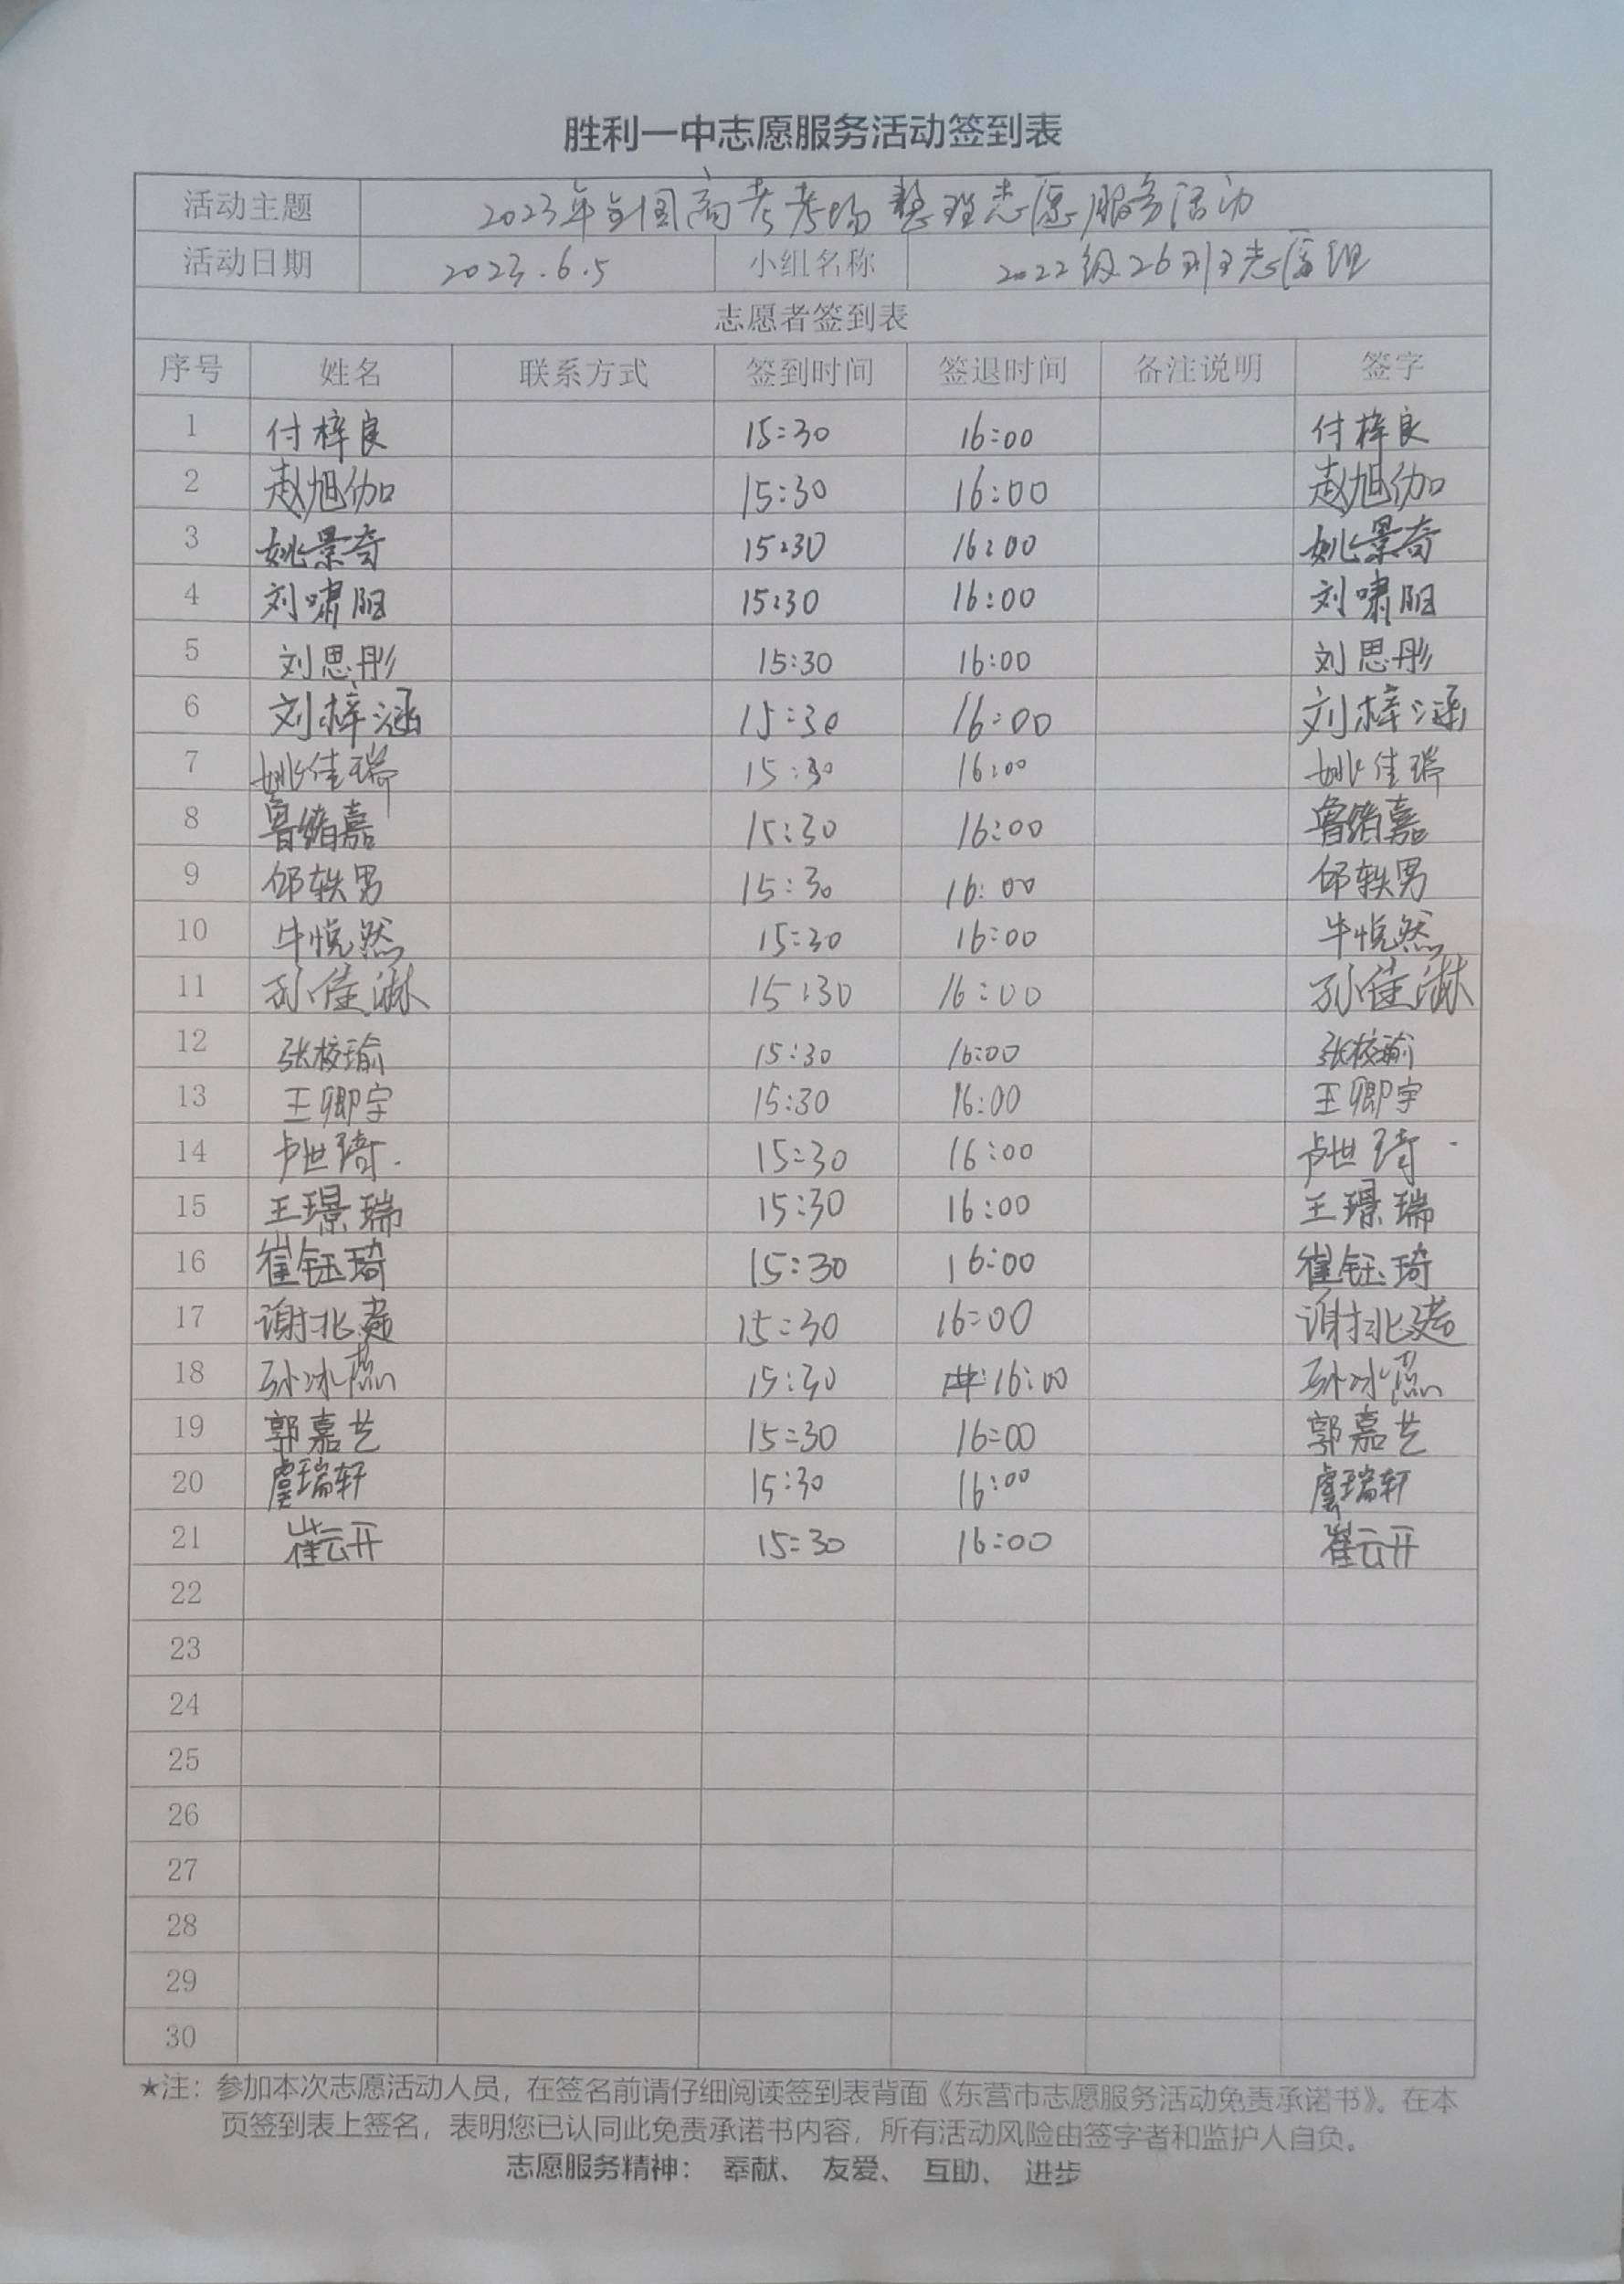 胜利一中志愿服务活动签到表
活动主题 2023年全国高考考场整理志愿服务活动
活动日期 2023.6.5 小组名称 2022级26班志愿组
志愿者签到表
序号 姓名 联系方式 签到时间 签退时间 备注说明 签字
1 付梓良 15:30 16:00 付梓良
2 赵旭伽 15:30 16:00 赵旭伽
3 姚景奇 15:30 16:00 姚景奇
4 刘啸阳 15:30 16:00 刘啸阳
5 刘思彤 15:30 16:00 刘思彤
6 刘梓涵 15:30 16:00 刘梓涵
7 姚佳瑞 15:30 16:00 姚佳瑞
8 鲁绪嘉 15:30 16:00 鲁绪嘉
9 邱轶男 15:30 16:00 邱轶男
10 牛悦然 15:30 16:00 牛悦然
11 孙佳淋 15:30 16:00 孙佳淋
12 张桉瑜 15:30 16:00 张桉瑜
13 王卿宇 15:30 16:00 王卿宇
14 卢世琦 15:30 16:00 卢世琦
15 王璟瑞 15:30 16:00 王璟瑞
16 崔钰琦 15:30 16:00 崔钰琦
17 15:30 16:00
18 15:30 16:00
19 郭嘉艺 15:30 16:00 郭嘉艺
20 虞瑞轩 15:30 16:00 虞瑞轩
21 崔云开 15:30 16:00 崔云开
22
23
24
25
26
27
28
29
30
★注：参加本次志愿活动人员，在签名前请仔细阅读签到表背面《东营市志愿服务活动免责承诺书》。在本
页签到表上签名，表明您已认同此免责承诺书内容，所有活动风险由签字者和监护人自负。
志愿服务精神： 奉献、 友爱、 互助、 进步